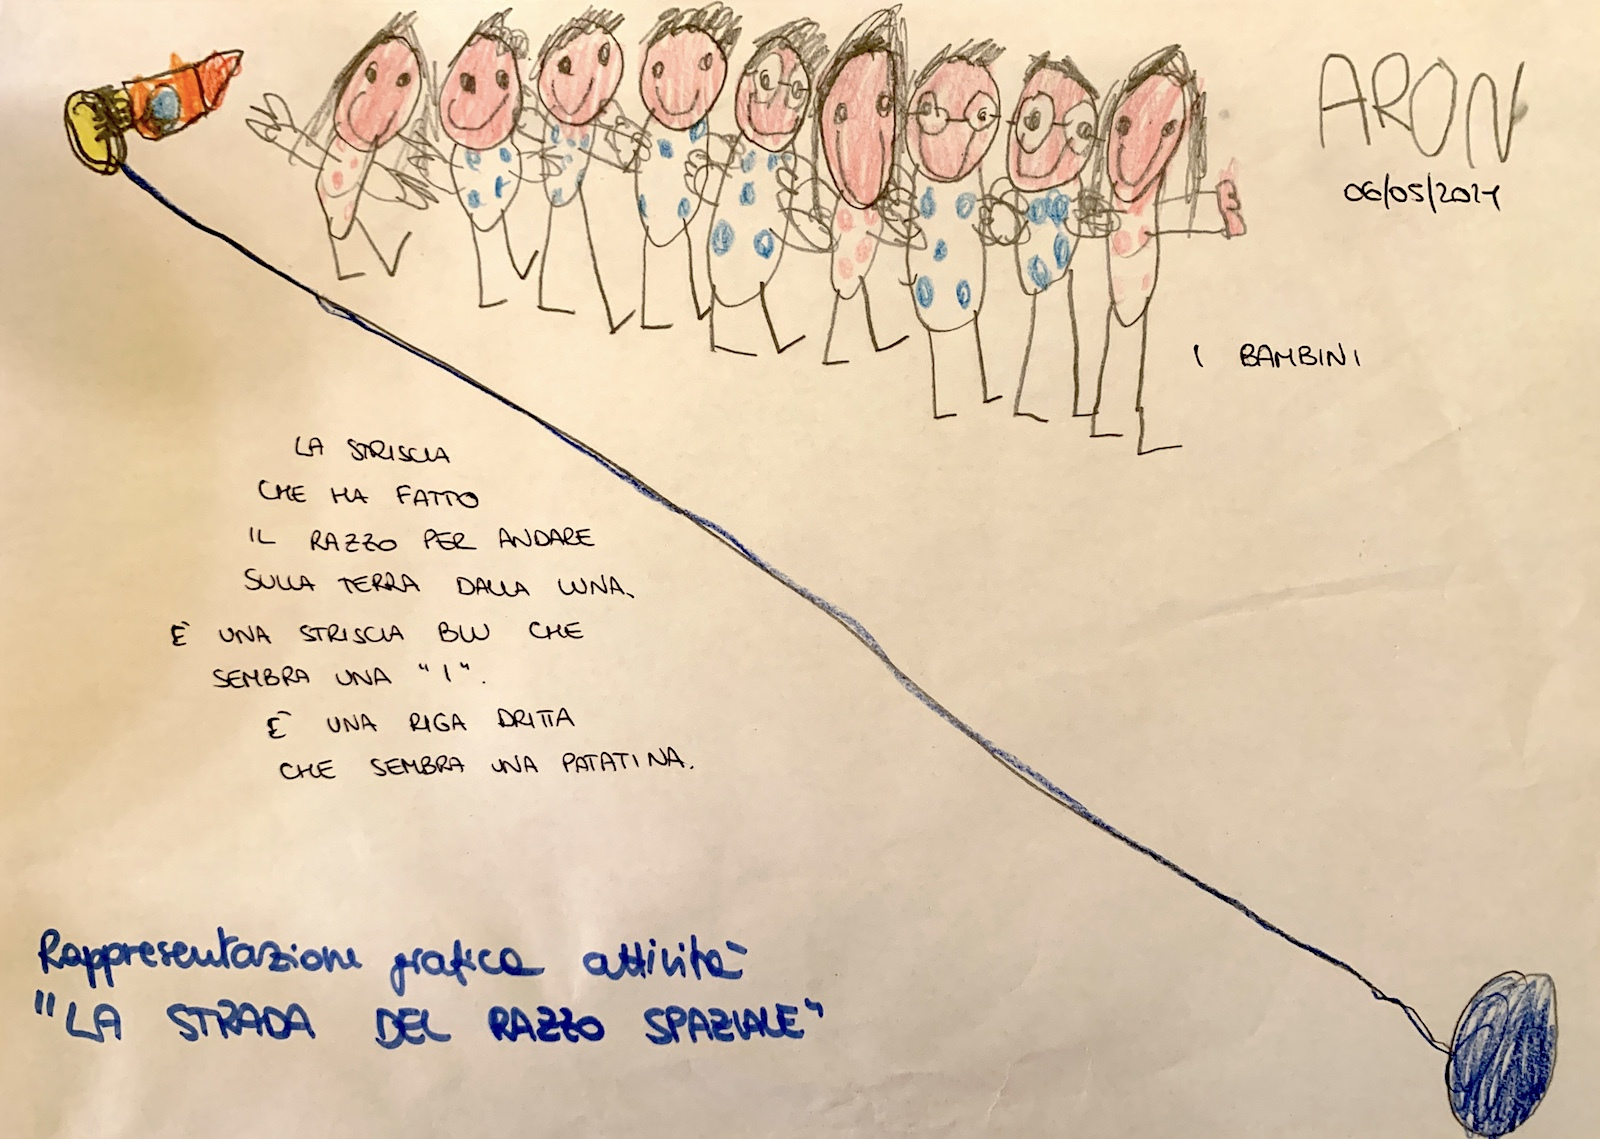 ARON
06/05/2021
I BAMBINI
LA STRISCIA
CHE HA FATTO
IL RAZZO PER ANDARE
SULLA TERRA DALLA LUNA.
È UNA STRISCIA BLU CHE
SEMBRA UNA "I".
È UNA RIGA DRITTA
CHE SEMBRA UNA PATATINA.
Rappresentazione grafica attività
"LA STRADA DEL RAZZO SPAZIALE"